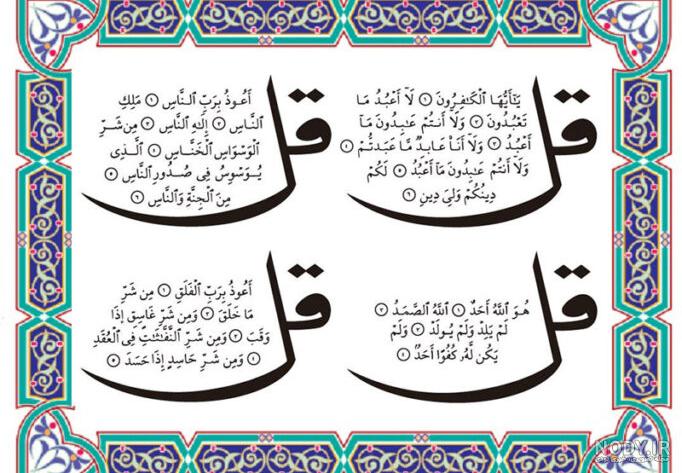 قل
يَٰٓأَيُّهَا ٱلْكَٰفِرُونَ ١ لَآ أَعْبُدُ مَا
تَعْبُدُونَ ٢ وَلَآ أَنتُمْ عَٰبِدُونَ مَآ
أَعْبُدُ ٣ وَلَآ أَنَا۠ عَابِدٌ مَّا عَبَدتُّمْ ٤
وَلَآ أَنتُمْ عَٰبِدُونَ مَآ أَعْبُدُ ٥ لَكُمْ
دِينُكُمْ وَلِىَ دِينِ ٦
قل
أَعُوذُ بِرَبِّ ٱلنَّاسِ ١ مَلِكِ
ٱلنَّاسِ ٢ إِلَٰهِ ٱلنَّاسِ ٣ مِن شَرِّ
ٱلْوَسْوَاسِ ٱلْخَنَّاسِ ٤ ٱلَّذِى
يُوَسْوِسُ فِى صُدُورِ ٱلنَّاسِ ٥
مِنَ ٱلْجِنَّةِ وَٱلنَّاسِ ٦
قل
هُوَ ٱللَّهُ أَحَدٌ ١ ٱللَّهُ ٱلصَّمَدُ ٢
لَمْ يَلِدْ وَلَمْ يُولَدْ ٣ وَلَمْ
يَكُن لَّهُۥ كُفُوًا أَحَدٌۢ ٤
قل
أَعُوذُ بِرَبِّ ٱلْفَلَقِ ١ مِن شَرِّ
مَا خَلَقَ ٢ وَمِن شَرِّ غَاسِقٍ إِذَا
وَقَبَ ٣ وَمِن شَرِّ ٱلنَّفَّٰثَٰتِ فِى ٱلْعُقَدِ
٤ وَمِن شَرِّ حَاسِدٍ إِذَا حَسَدَ ٥
NODY.IR